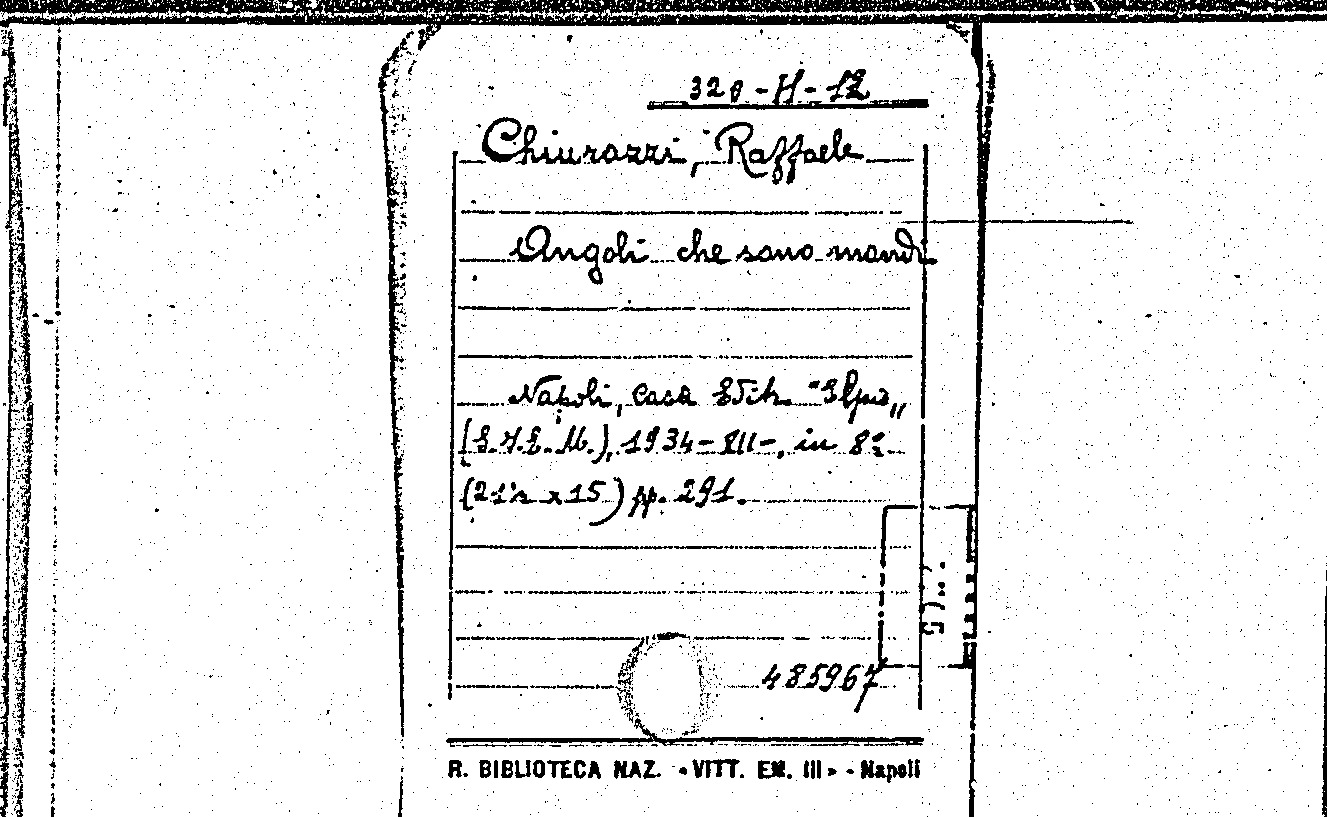 320-H-12
Chiurazzi, Raffaele
Angoli che sono mondi
Napoli, Casa Edit. "Elpis„
(S.I.E.M.), 1934-XII-, in 8º
(21½ x 15) pp. 291.
485967
R. BIBLIOTECA NAZ. «VITT. EM. III» - Napoli